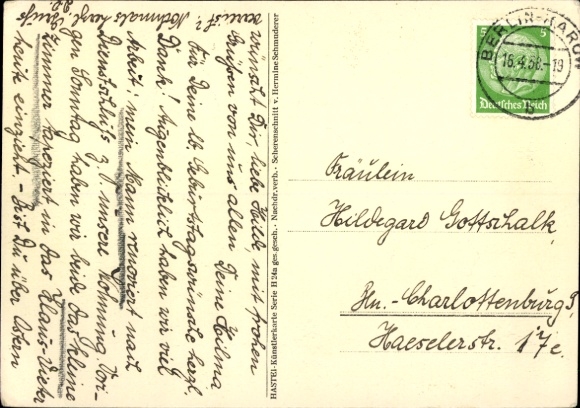 wünscht Dir, liebe Hilde, mit frohen
Grüßen von uns allen Deine Hilma
Für Deine lb. Geburtstagswünsche herzl.
Dank! Augenblicklich haben wir viel
Arbeit: mein Mann renoviert nach
Dienstschluß z. J. unsere Wohnung. Vori-
gen Sonntag haben wir beide das kleine
Zimmer tapeziert in das Klaus-Dieter
heute einzieht. – Bist Du über Ostern
verreist? Nochmals herzl. Grüße
HASTEI-Künstlerkarte Serie H 24a ges.gesch. - Nachdr. verb. - Scherenschnitt v. Hermine Schmunderer
5 5
Deutsches Reich
BERLIN-KAROW
16.4.38.-19
b
Fräulein
Hildegard Gottschalk,
Bln.-Charlottenburg 9,
Haeselerstr. 17e.